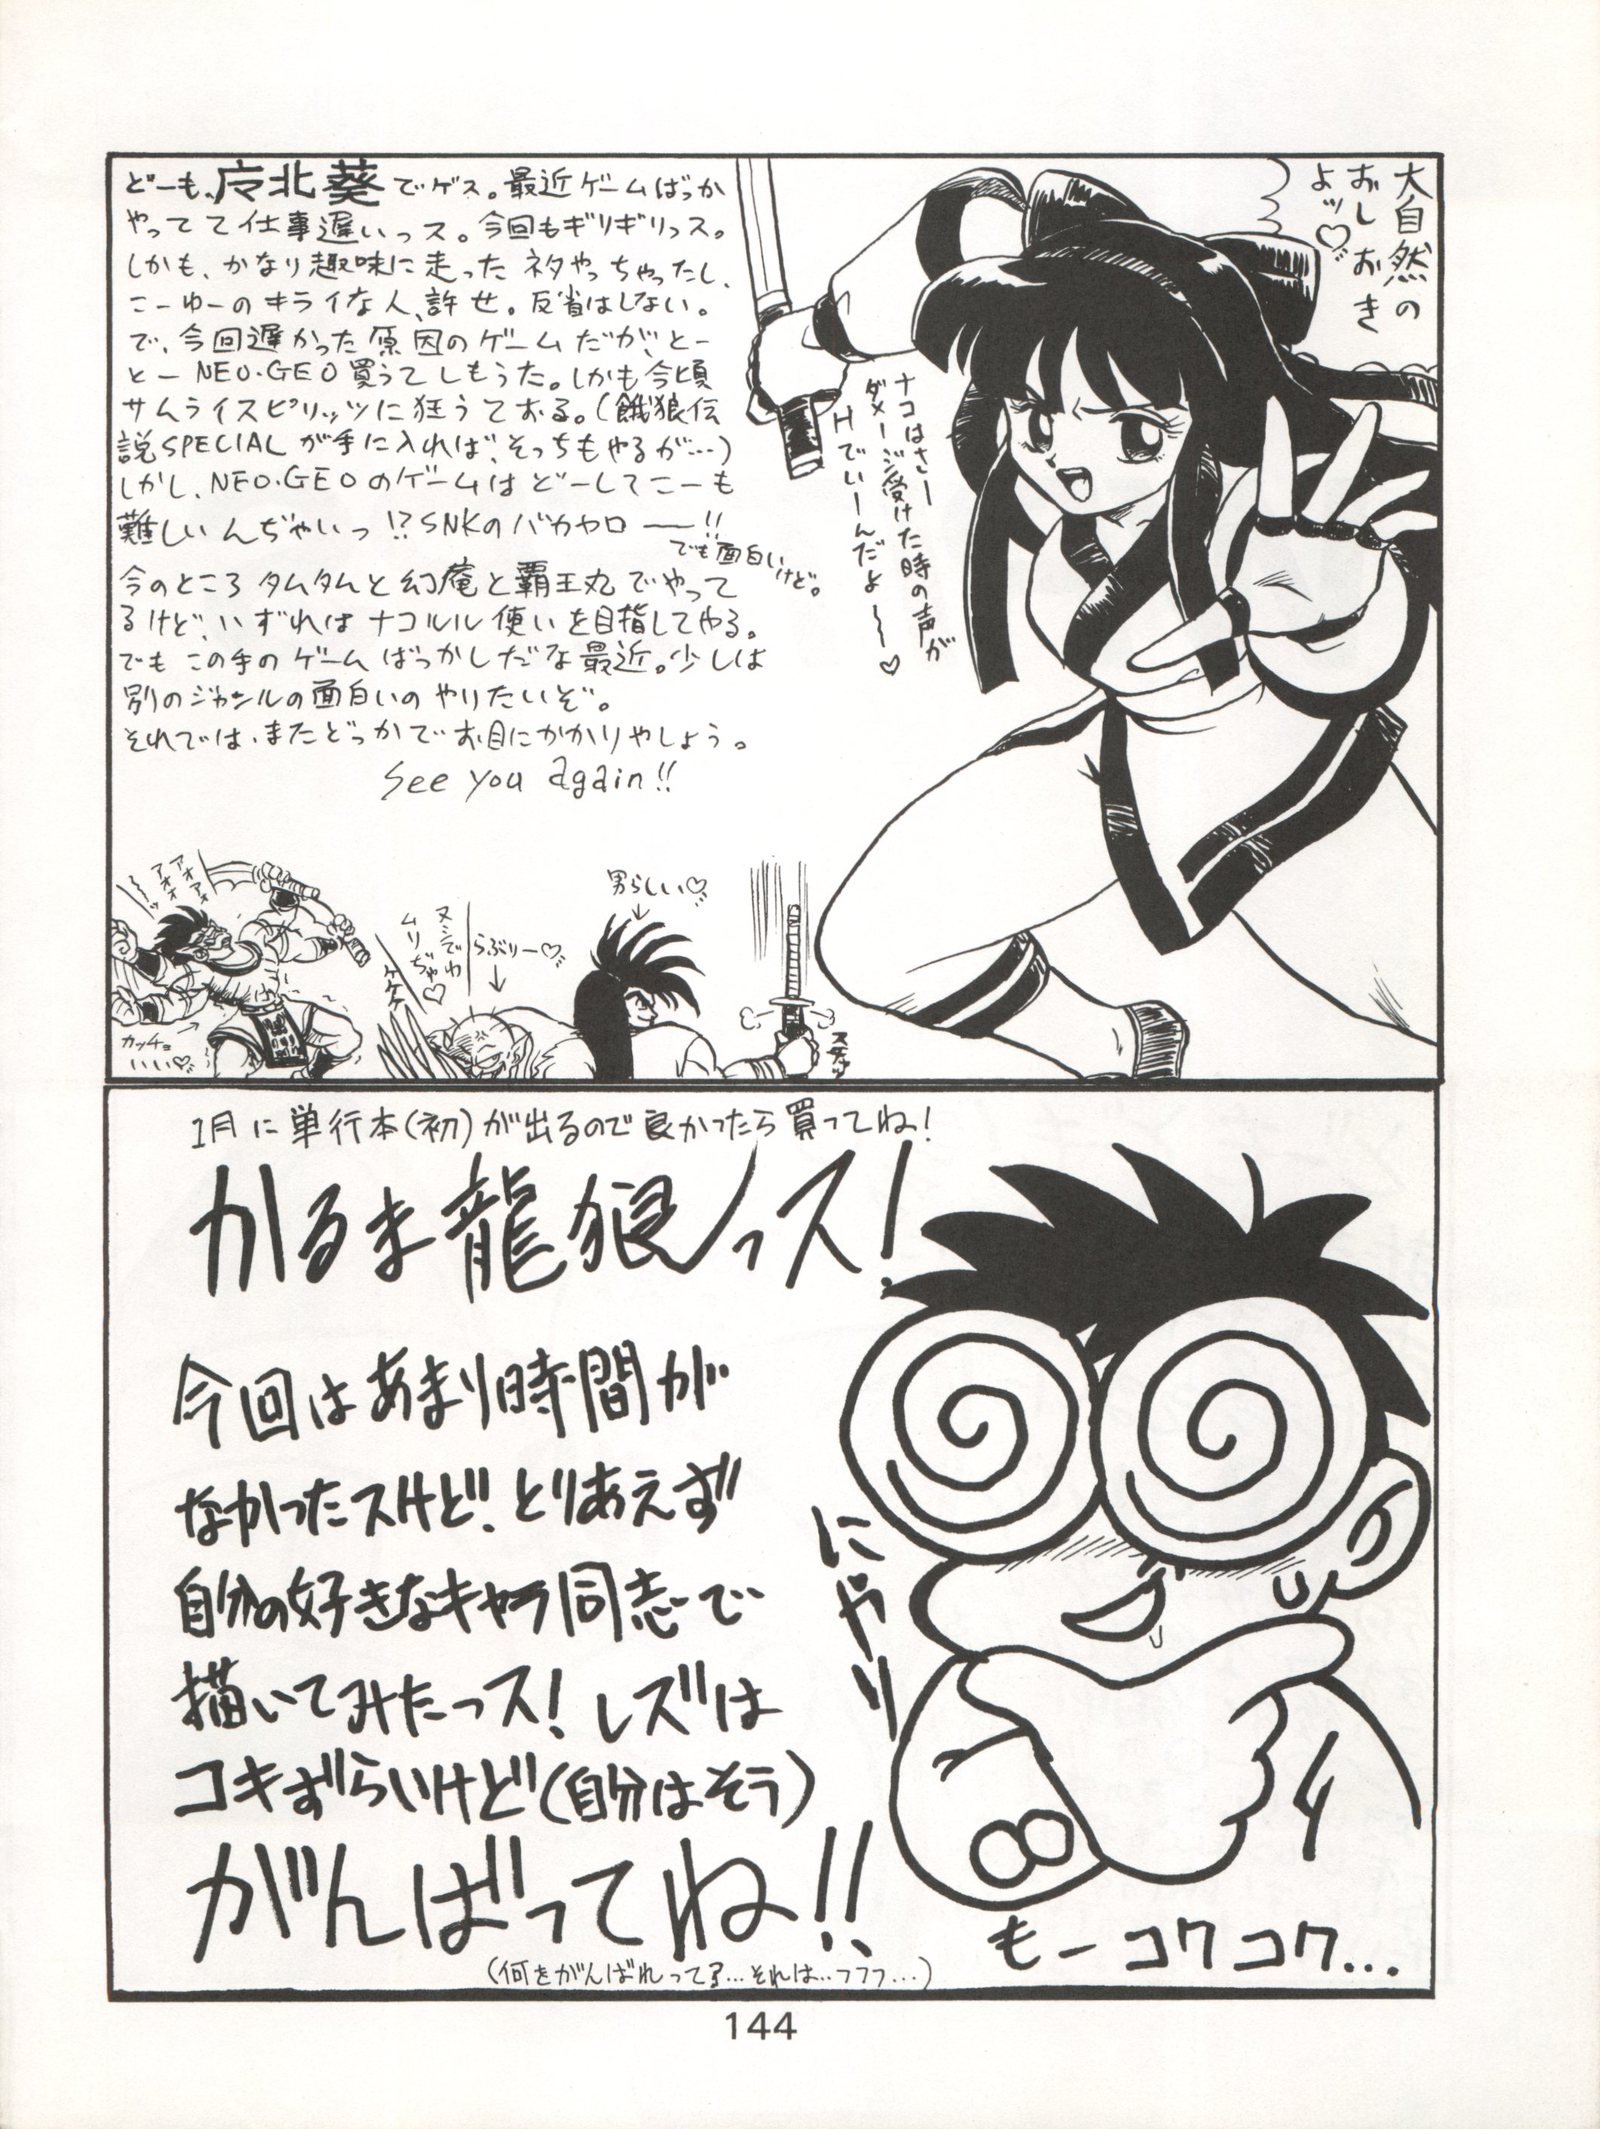 どーも、広北葵でゲス。最近ゲームばっか
やってて仕事遅いっス。今回もギリギリっス。
しかも、かなり趣味に走ったネタやっちゃったし、
こーゆーのキライな人、許せ。反省はしない。
で、今回遅かった原因のゲームだが、とー
とーNEO・GEO買うてしもうた。しかも今頃
サムライスピリッツに狂うておる。(餓狼伝
説SPECIALが手に入れば、そっちもやるが…)
しかし、NEO・GEOのゲームはどーしてこーも
難しいんぢゃいっ!?SNKのバカヤロ――!!
でも面白いけど。
今のところタムタムと幻庵と覇王丸でやって
るけど、いずれはナコルル使いを目指してやる。
でもこの手のゲームばっかしだな最近。少しは
別のジャンルの面白いのやりたいぞ。
それでは、またどっかでお目にかかりやしょう。
See you again!!
大自然の
おしおき
よッ♡
ナコはさー
ダメージ受けた時の声が
Hでいーんだよ〜♡
アオアオ
アオォ〜ッ
カッチョ
いい♡
ヌシでわ
ムリぢゃ♡
ケケケ
らぶりー♡
男らしい♡
1月に単行本(初)が出るので良かったら買ってね!
かるま龍狼っス!
今回はあまり時間が
なかったスけど、とりあえず
自分の好きなキャラ同志で
描いてみたっス!レズは
コキずらいけど(自分はそう)
がんばってね!!
(何をがんばれって?…それは…フフフ…)
にやり
もーコワコワ…
144